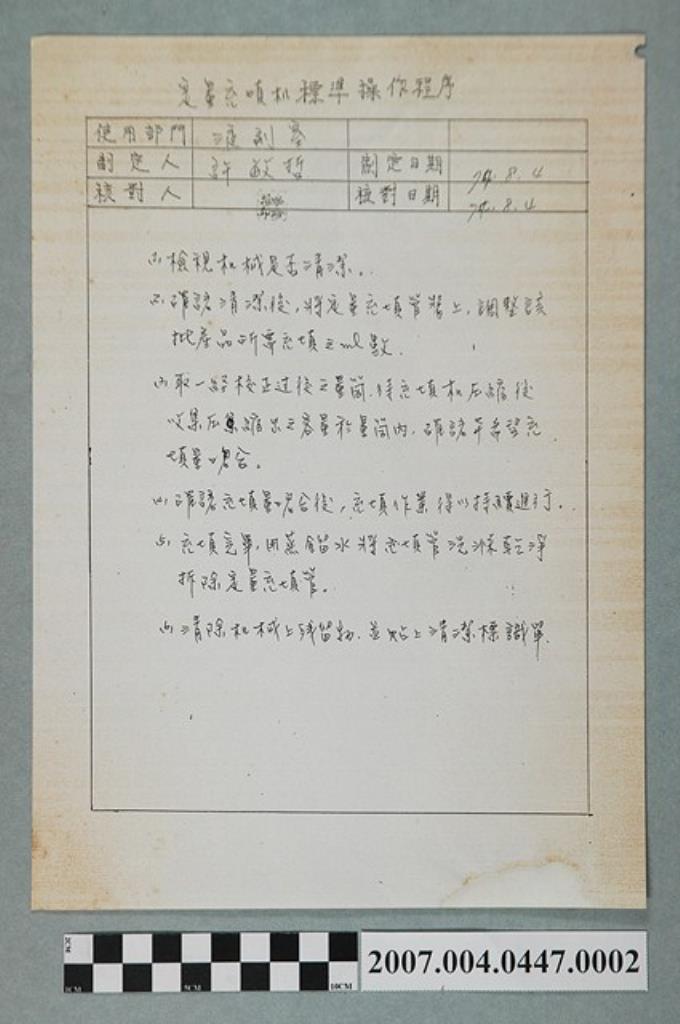 定量充填机標準操作程序
使用部門 液劑室
制定人 許敏哲 制定日期 74.8.4
核對人 核對日期 74.8.4
(1)檢視机械是否清潔。
(2)確認清潔後,將定量充填管裝上,調整該
批產品所需充填之ml數.
(3)取一經校正过後之量筒,待充填机压縮後
收集压縮出之容量於量筒內,確認是否與充
填量吻合。
(4)確認充填量吻合後,充填作業得以持續進行。
(5)充填完畢,用蒸餾水將充填管洗滌乾淨
拆除定量充填管。
(6)清除机械上残留物.並貼上清潔標識單.
2CM
1CM
5CM
10CM
2007.004.0447.0002